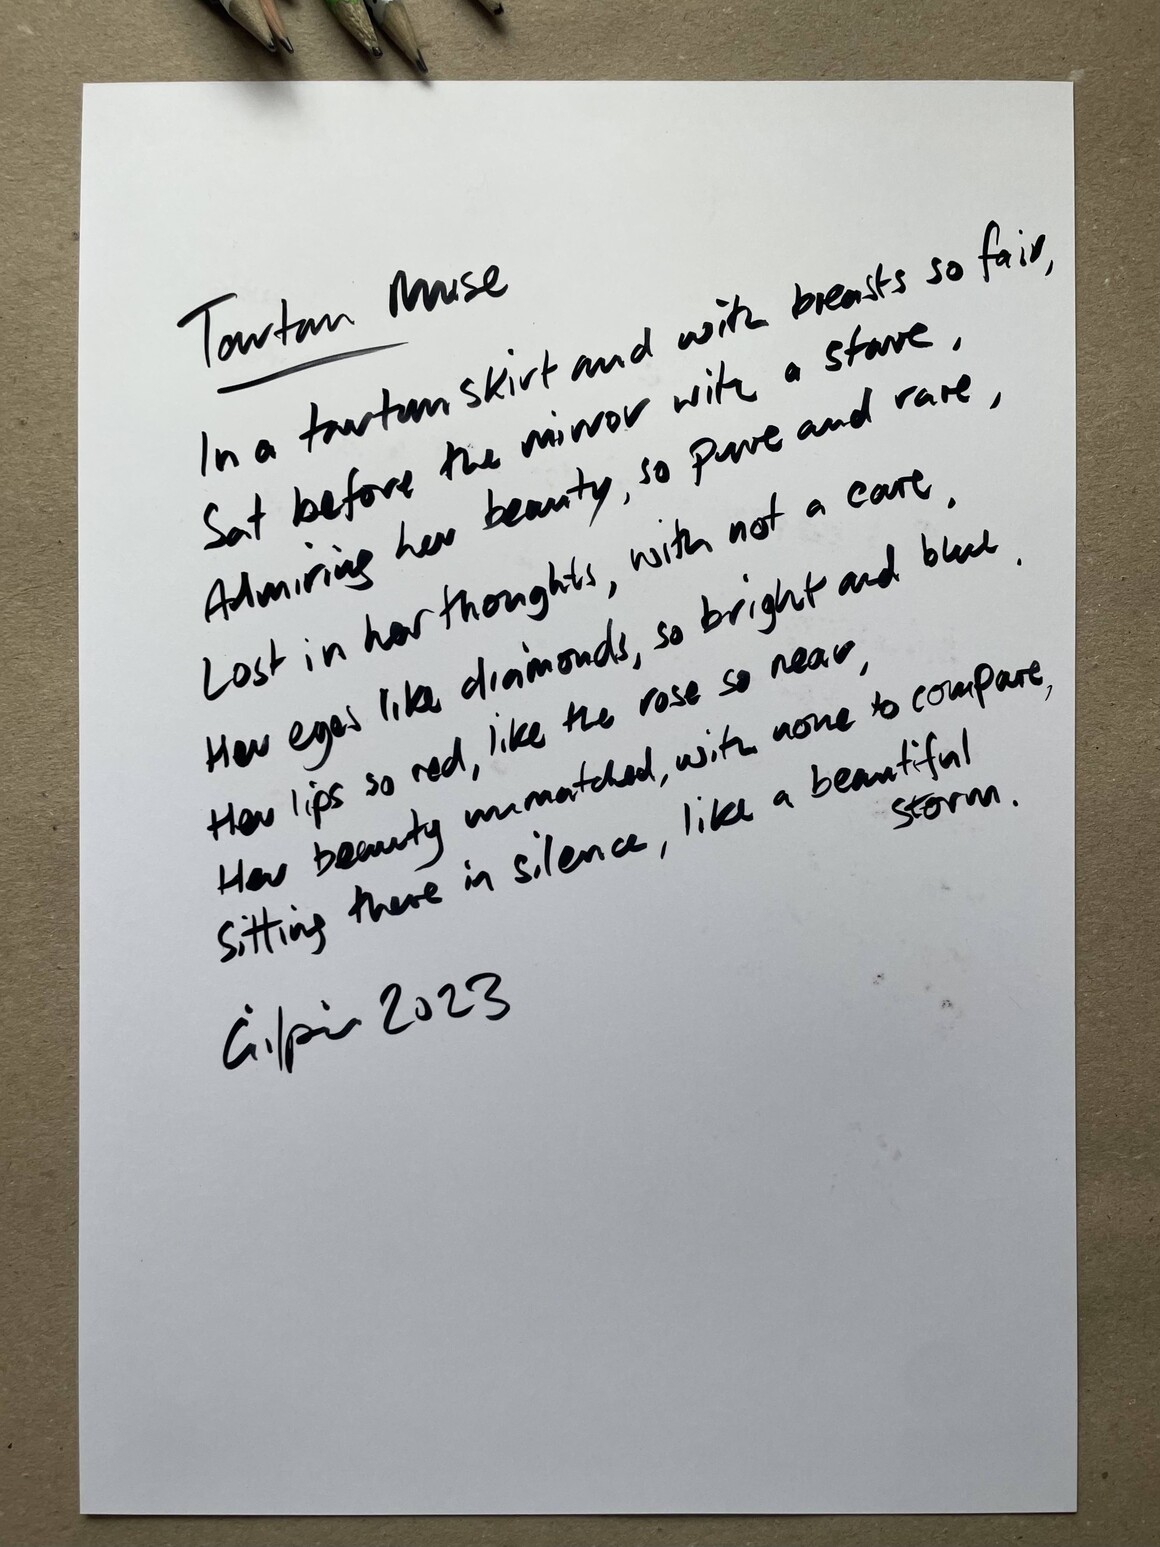 Tartan Muse
In a tartan skirt and with breasts so fair,
Sat before the mirror with a stare,
Admiring her beauty, so pure and rare,
Lost in her thoughts, with not a care,
Her eyes like diamonds, so bright and blue.
Her lips so red, like the rose so near,
Her beauty unmatched, with none to compare,
Sitting there in silence, like a beautiful
storm.
Gilpin 2023